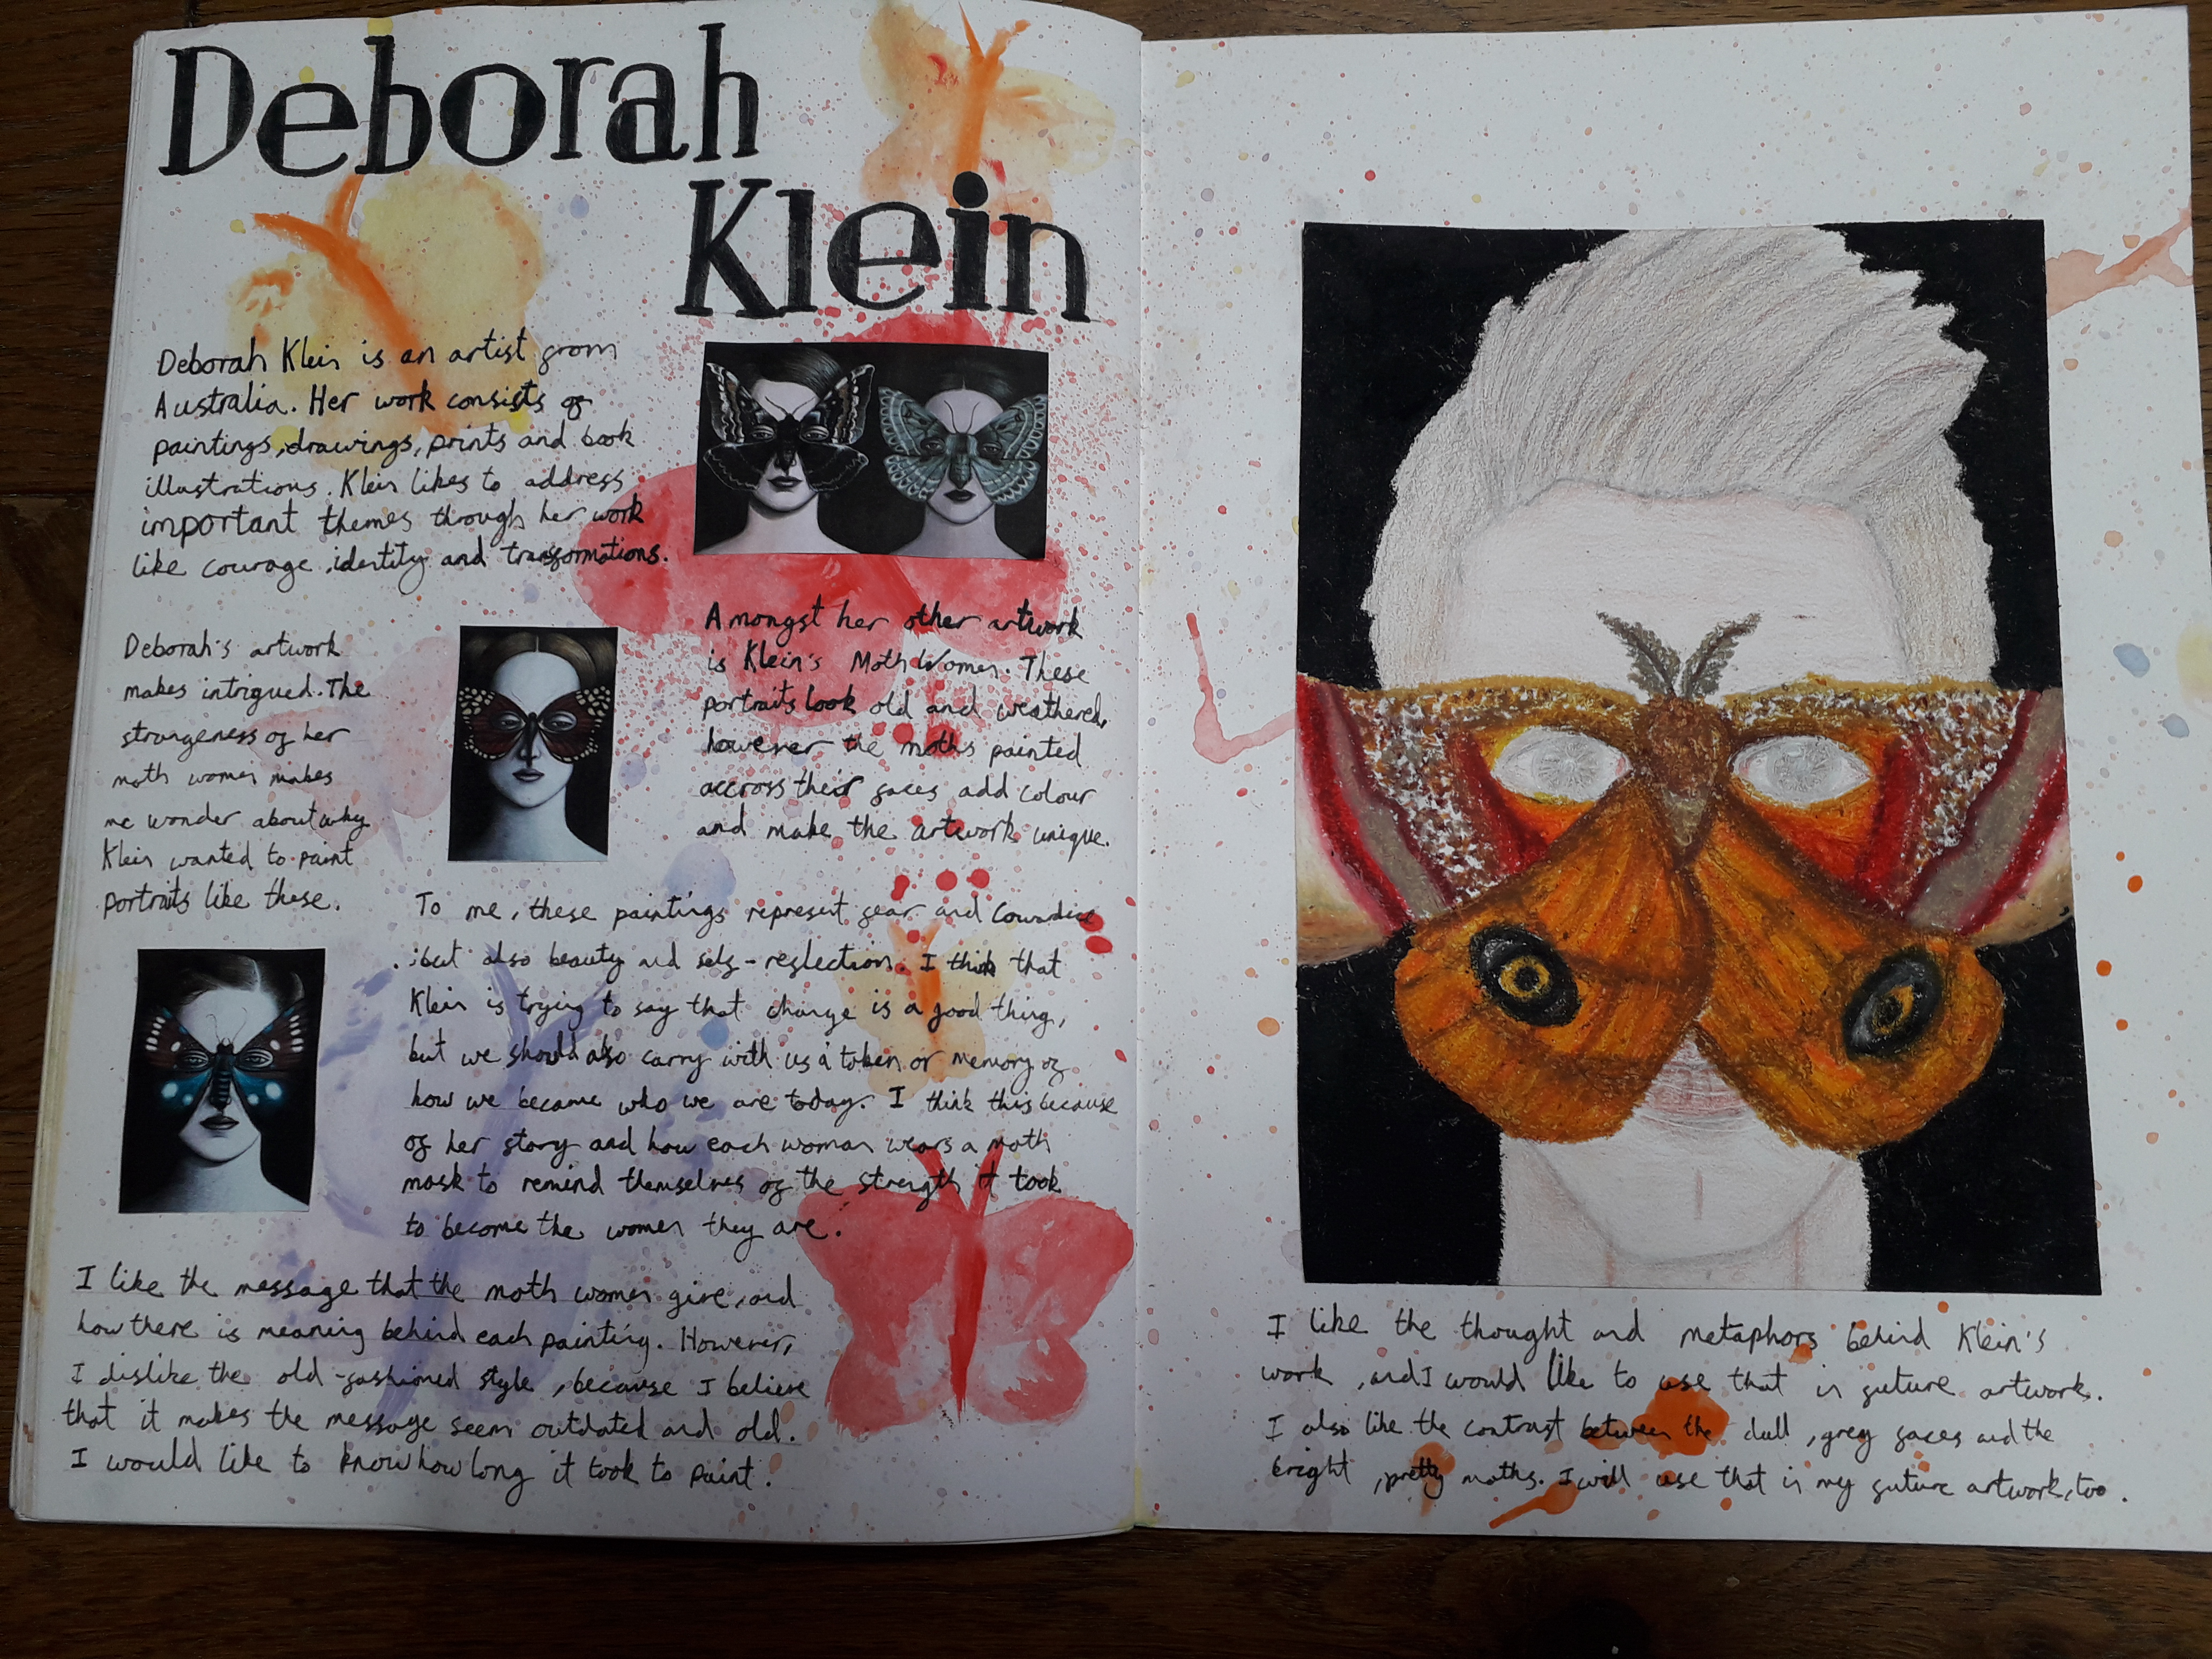 Deborah
Klein
Deborah Klein is an artist from
Australia. Her work consists of
paintings, drawings, prints and book
illustrations. Klein likes to address
important themes through her work
like courage, identity and transformations.
Amongst her other artwork
is Klein's Moth Women. These
portraits look old and weathered,
however the moths painted
accross their faces add colour
and make the artwork unique.
Deborah's artwork
makes intrigued. The
strangeness of her
moth women makes
me wonder about why
Klein wanted to paint
portraits like these.
To me, these paintings represent fear and cowardice
, but also beauty and self-reflection. I think that
Klein is trying to say that change is a good thing,
but we should also carry with us a token or memory of
how we became who we are today. I think this because
of her story and how each woman wears a moth
mask to remind themselves of the strength it took
to become the women they are.
I like the message that the moth women give, and
how there is meaning behind each painting. However,
I dislike the old-fashioned style, because I believe
that it makes the message seem outdated and old.
I would like to know how long it took to paint.
I like the thought and metaphors behind Klein's
work, and I would like to use that in future artwork.
I also like the contrast between the dull, grey faces and the
bright, pretty moths. I will use that in my future artwork, too.